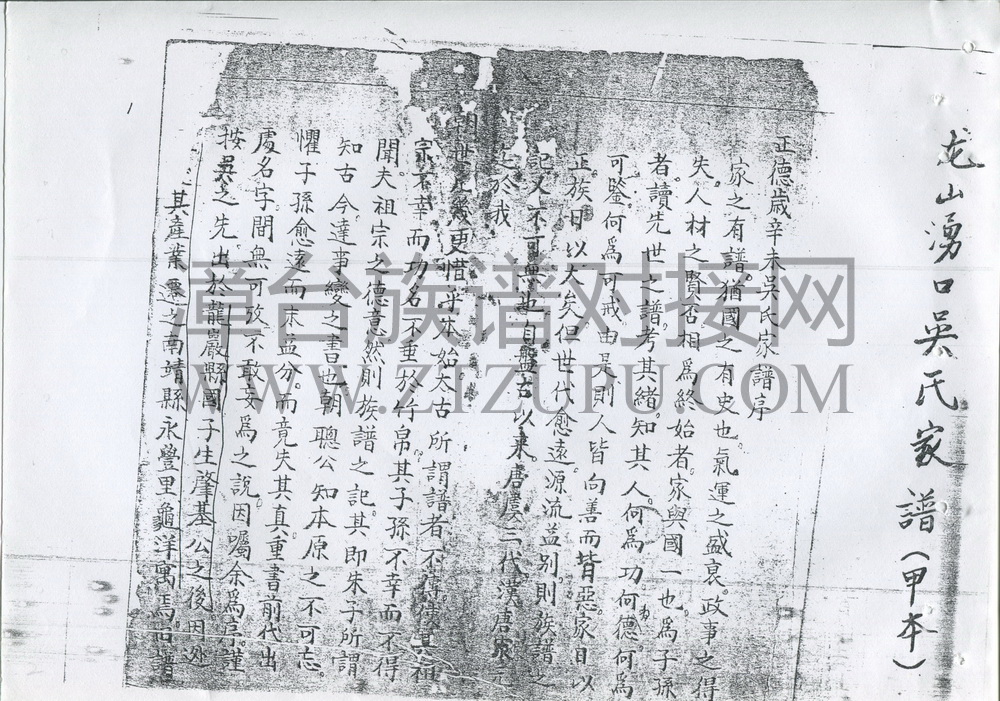 龙山湧口吳氏家譜(甲本)
正德歲辛未吳氏家譜序
家之有譜。猶國之有史也。氣運之盛衰。政事之得
失。人材之賢否。相爲終始者。家與國一也。爲子孫
者。讀先世之譜。考其緒。知其人。何爲功。何德何爲
可鑒。何爲可戒。由是則人皆向善而背惡。家日以
正。族日以大矣。但世代愈遠。源流益別。則族譜之
記又不可無也自盤古以來唐虞三代漢唐宋元
迄於我
朝世凡幾更惜乎本始太古所謂譜者不得傳其祖
宗不幸而功名不垂於竹帛其子孫不幸而不得
聞夫祖宗之德意然則族譜之記其即朱子所謂
知古今達事變之書也朝聰公知本原之不可忘。
懼子孫愈遠而末益分。而竟失其真重書前代出
處名字間無可攷不敢妄爲之說。因囑余爲序謹
按吳之先出於龍巖縣國子生肇基公之後因
其產業之南靖縣永豐里龜洋寓焉。古譜
章台族谱对接网
WWW.ZTZUPU.COM